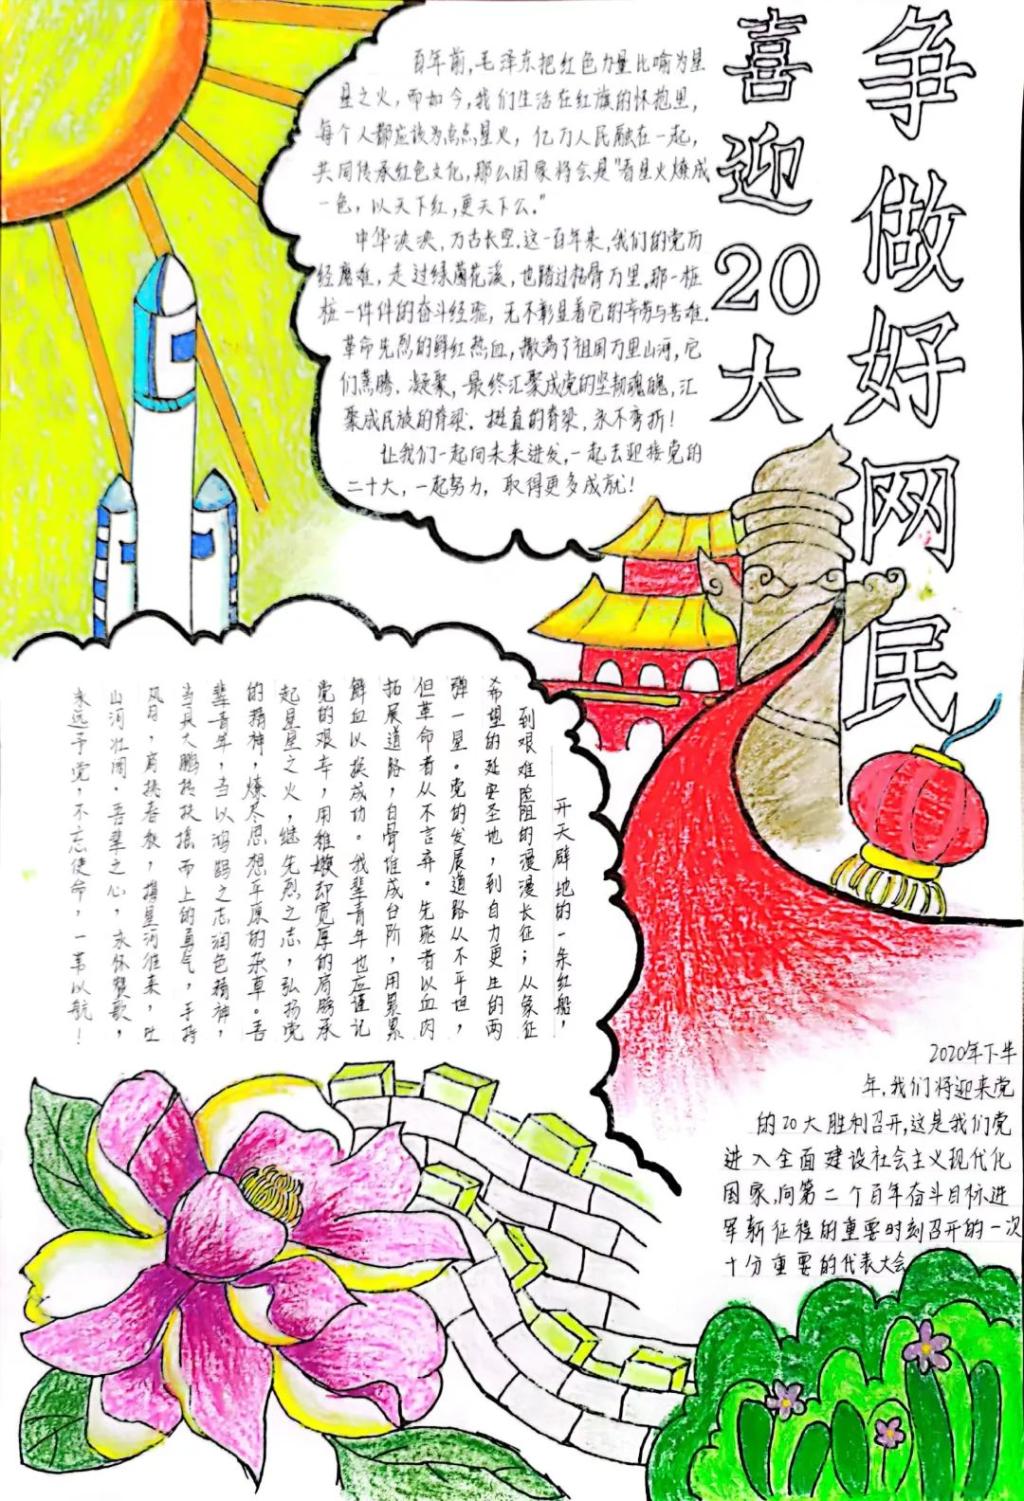 争做好网民
喜迎20大
百年前,毛泽东把红色力量比喻为星
星之火,而如今,我们生活在红旗的怀抱里,
每个人都应该为点点星火,亿万人民融在一起,
共同传承红色文化,那么国家将会是"看星火燎成
一色,以天下红,更天下公."
中华泱泱,万古长空.这一百年来,我们的党历
经磨难,走过绿茵花溪,也踏过枯骨万里,那一桩
桩一件件的奋斗经验,无不彰显着它的辛劳与苦难.
革命先烈的鲜红热血,撒满了祖国万里山河,它
们蒸腾、凝聚,最终汇聚成党的坚韧魂魄,汇
聚成民族的脊梁.挺直的脊梁,永不弯折!
让我们一起向未来进发,一起去迎接党的
二十大,一起努力,取得更多成就!
开天辟地的一条红船,
到艰难险阻的漫漫长征;从象征
希望的延安圣地,到自力更生的两
弹一星。党的发展道路从不平坦,
但革命者从不言弃。先驱者以血肉
拓展道路,白骨堆成台阶,用累累
鲜血以换成功。我辈青年也应谨记
党的艰辛,用稚嫩却宽厚的肩膀承
起星星之火,继先烈之志,弘扬党
的精神,燎尽思想平原的杂草。吾
辈青年,当以鸿鹄之志润色精神,
当具大鹏抟扶摇而上的勇气,手持
风月,肩挑春秋,揽星河往来,吐
山河壮阔。吾辈之心,永怀赞歌,
永远予党,不忘使命,一苇以航!
2020年下半
年,我们将迎来党
的20大胜利召开,这是我们党
进入全面建设社会主义现代化
国家,向第二个百年奋斗目标进
军新征程的重要时刻召开的一次
十分重要的代表大会